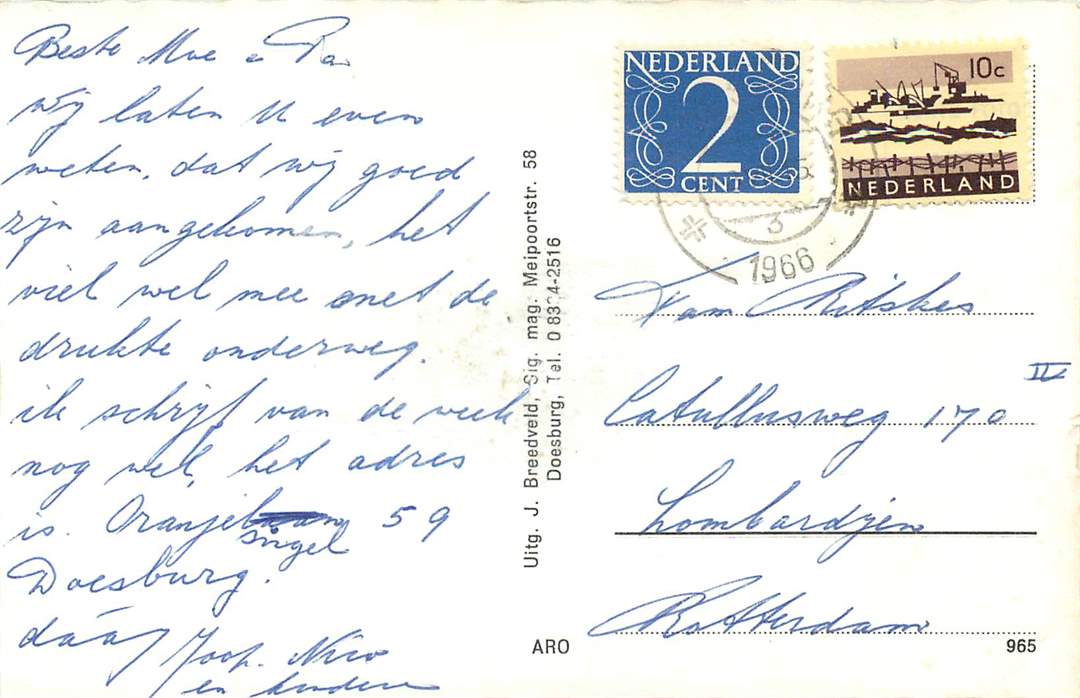 Beste Moe e Pa
Wij laten U even
weten, dat wij goed
zijn aangekomen, het
viel wel mee met de
drukte onderweg.
ik schrijf van de week
nog wel, het adres
is. Oranje singel 59
Doesburg.
dáág Joop. Nico
en kinderen
Uitg. J. Breedveld, Sig. mag. Meipoortstr. 58
Doesburg, Tel. 0 8334-2516
ARO
NEDERLAND
2
CENT
10c
NEDERLAND
3
1966
Fam Ritskes
II
Catullusweg 170
Lombardijen
Rotterdam
965